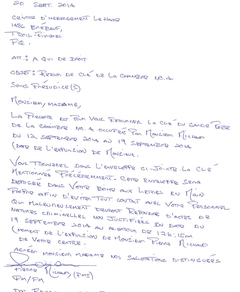 20 SEPT. 2014
CENTRE D'HEBERGEMENT LE HAVRE
1486 BRÉBEUF,
TROIS-RIVIÈRES
P.Q.
ATT: A QUI DE DROIT
OBJET: REMISE DE CLÉ DE LA CHAMBRE NO. 4
SANS PRÉJUDICE(S)
MONSIEUR, MADAME,
LA PRÉSENTE EST POUR VOUS REDONNER LA CLÉ DU
DE LA CHAMBRE NO. 4 OCCUPÉE PAR MONSIEUR
DU 12 SEPTEMBRE 2014 AU 19 SEPTEMBRE 2014
(DATE DE L'EXPULSION DE MONSIEUR).
VOUS TROUVEREZ DANS L'ENVELOPPE CI-JOINTE LA CLÉ
MENTIONNÉE PRÉCÉDEMMENT. CETTE ENVELOPPE SERA
DÉPOSÉE DANS VOTRE BOITE AUX LETTRES EN MAIN
PROPRE AFIN D'ÉVITER TOUT CONTACT AVEC VOTRE PERSONNEL
QUI MALHEUREUSEMENT PEUVENT D'ACTES DE
NATURES CRIMINELLES NON JUSTIFIÉES EN DATE DU
19 SEPTEMBRE 2014 AU ALENTOUR DE 17h:15m
(MOMENT DE L'EXPULSION DE MONSIEUR PIERRE
DE VOTRE CENTRE.
AGRÉER MONSIEUR MADAME NOS SALUTATIONS DISTINGUÉES
PIERRE
PM/PM